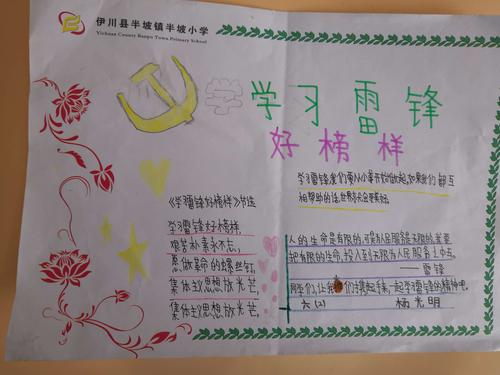 伊川县半坡镇半坡小学
Yichuan County Banpo Town Primary School
学 学习雷锋
好榜样
学习雷锋,我们要从小事开始做起,如果我们都互
相帮助的话,世界就会更美好。
《学习雷锋好榜样》节选
学习雷锋好榜样,
艰苦朴素永不忘,
愿做革命的螺丝钉,
集体主义思想放光芒,
集体主义思想放光芒。
人的生命是有限的,可是为人民服务是无限的,我要
把有限的生命,投入到无限的为人民服务之中去。
——雷锋
同学们,让我们扛起手来,一起学习雷锋的精神吧。
六(2) 杨光明